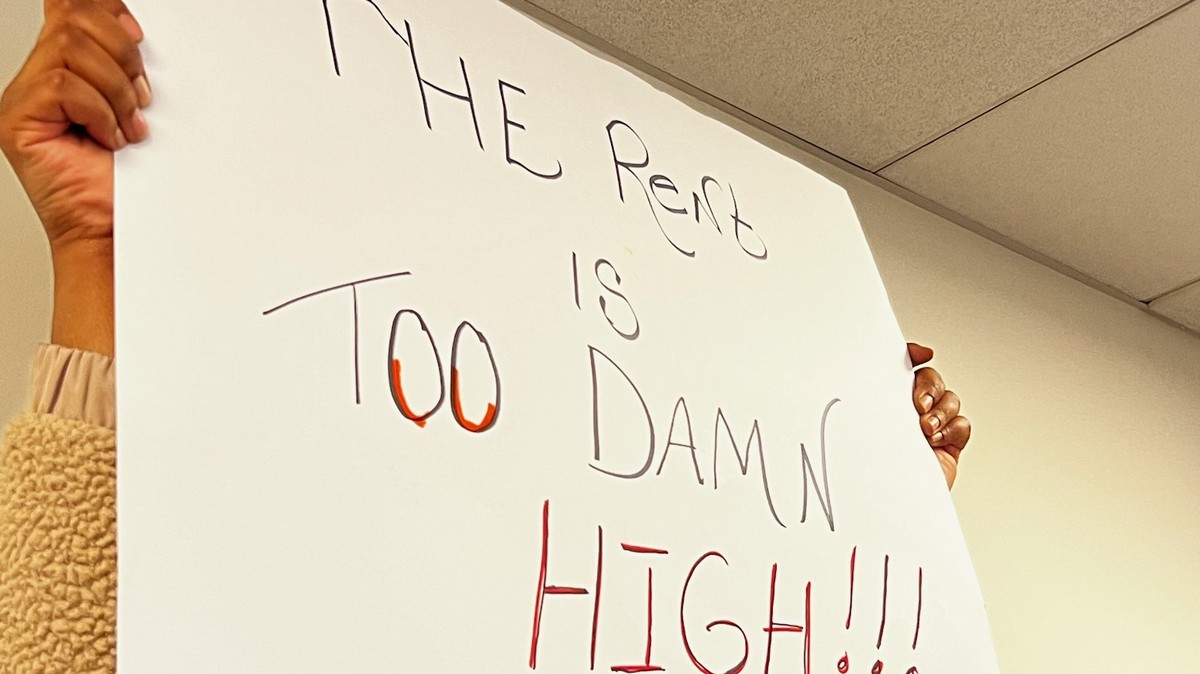 THE Rent
IS
TOO DAMN
HIGH!!!